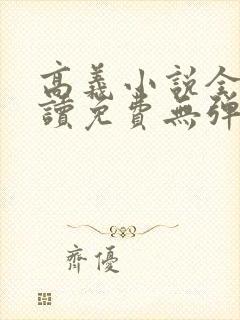 高義小說全
讀免費無彈
齊優